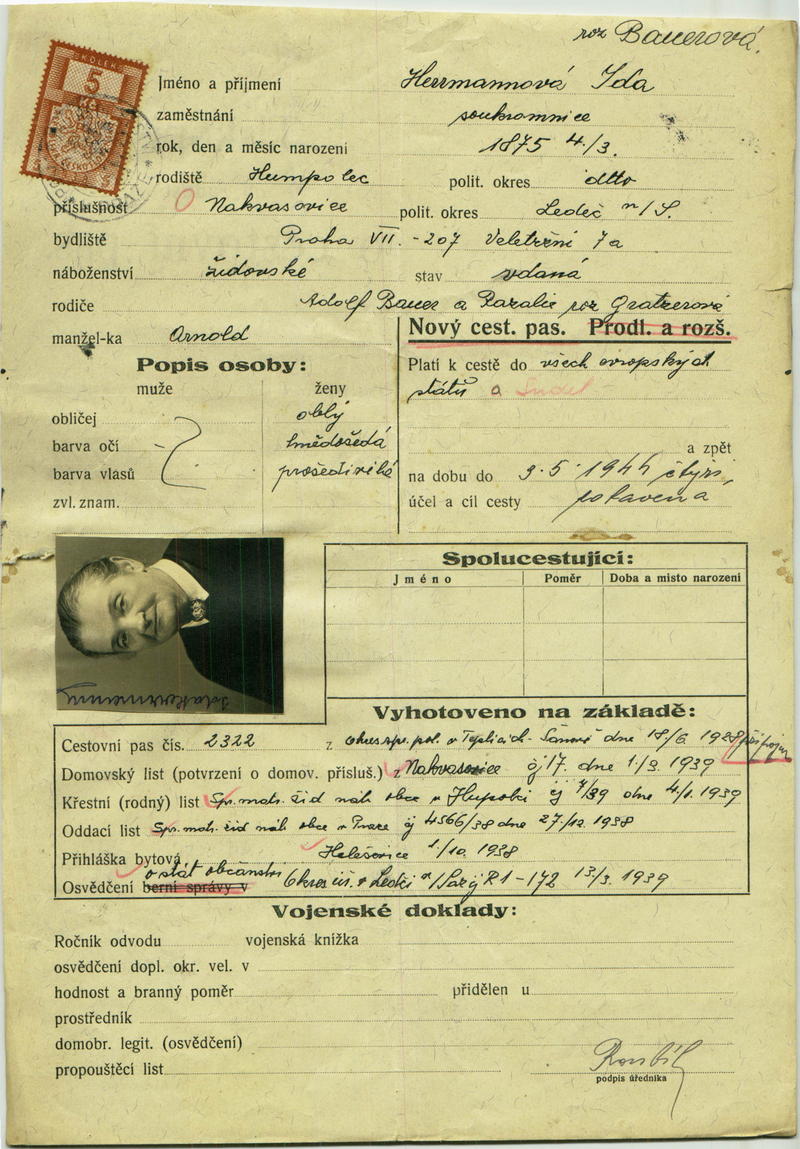 roz Bauerová.
KOLEK
5
Jméno a příjmení Herrmannová Ida
zaměstnání soukromnice
rok, den a měsíc narození 1875 4./3.
rodiště Humpolec polit. okres dtto
příslušnost Nakvasovice polit. okres Ledeč n/S.
bydliště Praha VII. - 207 Veletržní 7a
náboženství židovské stav vdaná
rodiče Adolf Bauer a Rozalie roz Gratzerová
manžel-ka Arnold
Nový cest. pas. Prodl. a rozš.
Popis osoby:
Platí k cestě do všech evropských
muže ženy
států a
obličej oblý
barva očí hnědošedá
a zpět
barva vlasů prošedivělé
na dobu do 9.5.1944 čtyři,
zvl. znam.
účel a cíl cesty
Spolucestující:
Jméno Poměr Doba a místo narození
Vyhotoveno na základě:
Cestovní pas čís. 2322 z okres. pol. v Teplicích - Šanově dne 18/6 1928
Domovský list (potvrzení o domov. přísluš.) z Nakvasovice čj 17. dne 1./3. 1939
Křestní (rodný) list Sp. mat. žid náb obce v čj 7/39 dne 4/1. 1939
Oddací list Sp. mat. žid náb obce v Praze čj 4566/38 dne 27./12. 1938
Přihláška bytová Holešovice 1/10. 1938
o stát občanství
Osvědčení berní správy v Okres úř. v Ledči n/Sáz čj R1-172 13./3. 1939
Vojenské doklady:
Ročník odvodu vojenská knížka
osvědčení dopl. okr. vel. v
hodnost a branný poměr přidělen u
prostředník
domobr. legit. (osvědčení)
propouštěcí list
podpis úředníka